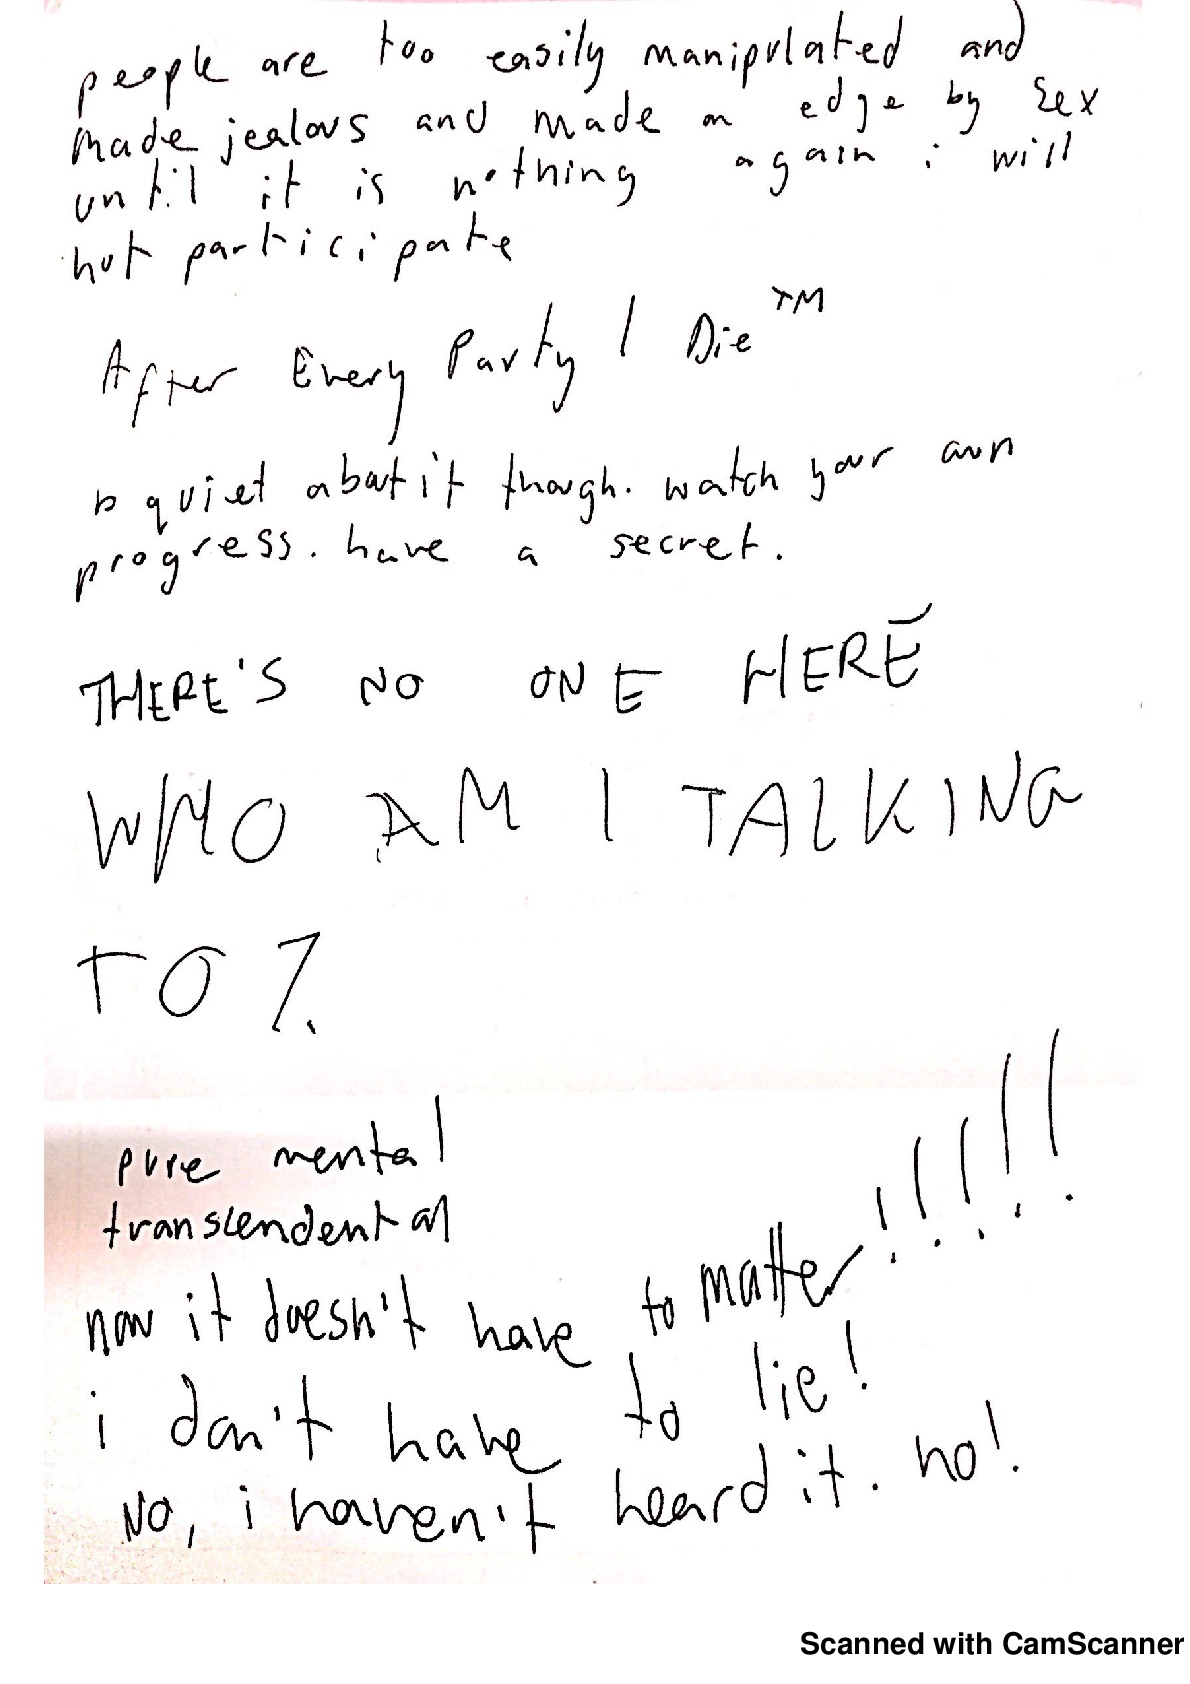 people are too easily manipulated and
made jealous and made on edge by sex
until it is nothing again i will
not participate
After Every Party I Die™
b quiet about it though. watch your own
progress. have a secret.
THERE'S NO ONE HERE
WHO AM I TALKING
TO?
pure mental
transcendental
now it doesn't have to matter!!!!!
i don't have to lie!
NO, i haven't heard it. no!
Scanned with CamScanner